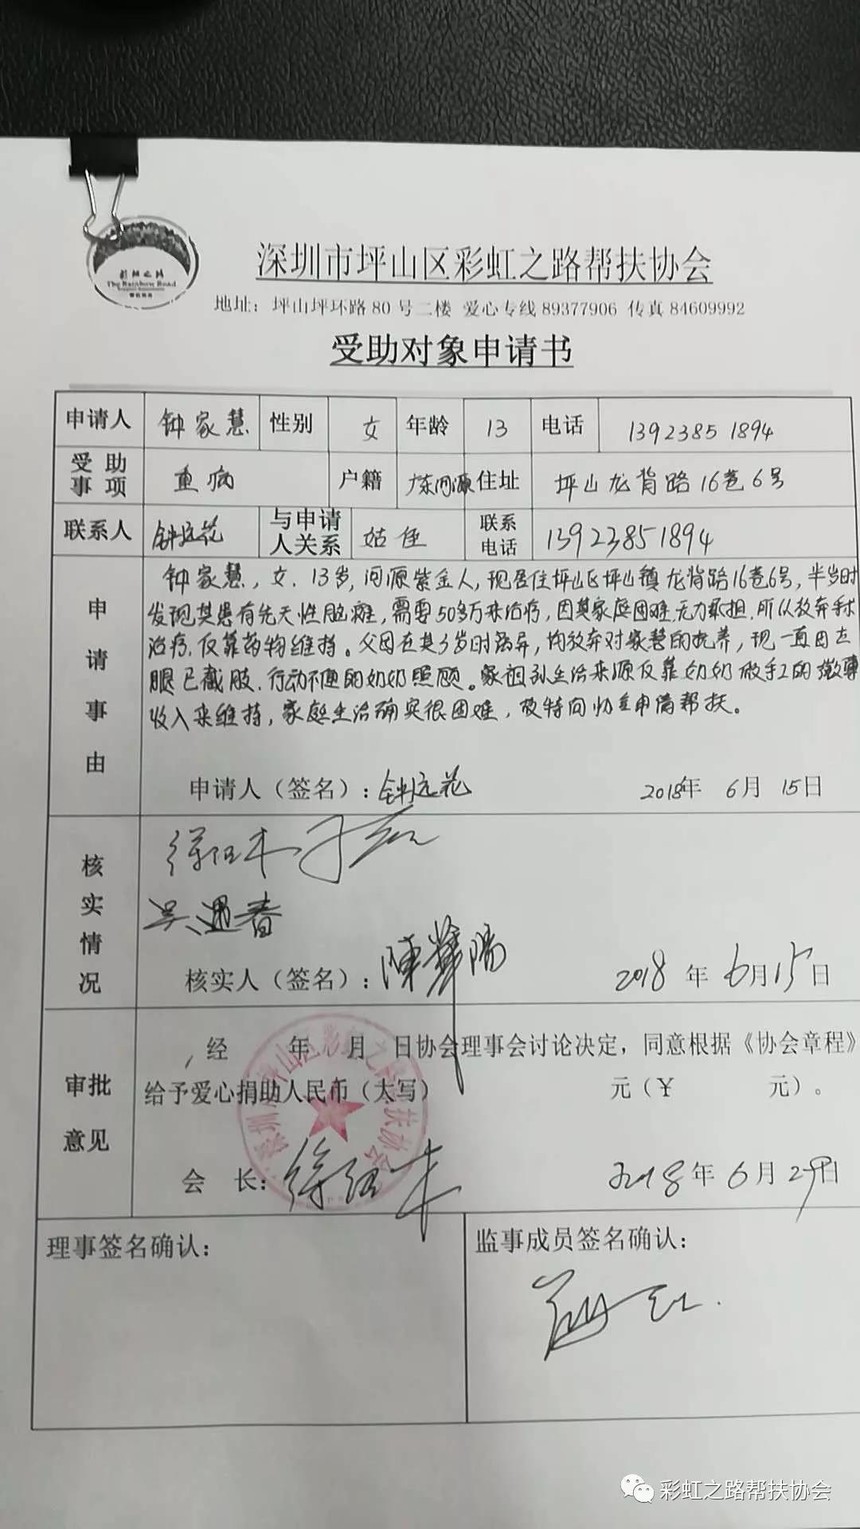 彩虹之路
The Rainbow Road
深圳市坪山区彩虹之路帮扶协会
地址：坪山坪环路80号二楼 爱心专线89377906 传真84609992
受助对象申请书
申请人 钟家慧 性别 女 年龄 13 电话 13923851894
受助事项 重病 户籍 广东河源 住址 坪山龙背路16巷6号
联系人 钟远花 与申请人关系 姑侄 联系电话 13923851894
申请事由
钟家慧，女，13岁，河源紫金人，现居住坪山区坪山镇龙背路16巷6号，半岁时
发现其患有先天性脑瘫，需要50多万来治疗，因其家庭困难无力承担，所以放弃手术
治疗，仅靠药物维持。父母在其3岁时离异，均放弃对家慧的抚养，现一直由左
腿已截肢、行动不便的奶奶照顾。家祖孙生活来源仅靠奶奶做手工的微薄
收入来维持，家庭生活确实很困难，故特向协会申请帮扶。
申请人（签名）：钟远花 2018年 6月 15日
核实情况
吴遇春
核实人（签名）： 2018年 6月15日
审批意见
经 年 月 日协会理事会讨论决定，同意根据《协会章程》
给予爱心捐助人民币（大写） 元（￥ 元）。
会 长： 2018年 6月 29日
理事签名确认：
监事成员签名确认：
彩虹之路帮扶协会